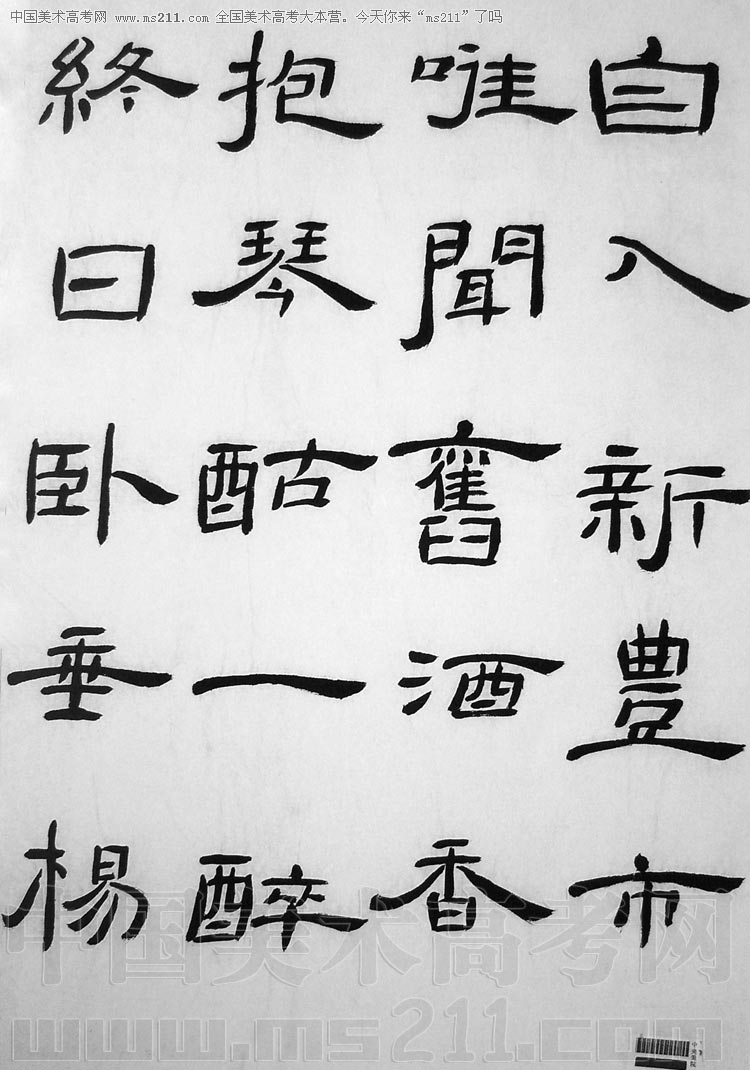 中国美术高考网 www.ms211.com 全国美术高考大本营。今天你来“ms211”了吗
自入新豊市
唯聞舊酒香
抱琴酤一醉
終日卧垂楊
中国美术高考网
www.ms211.com